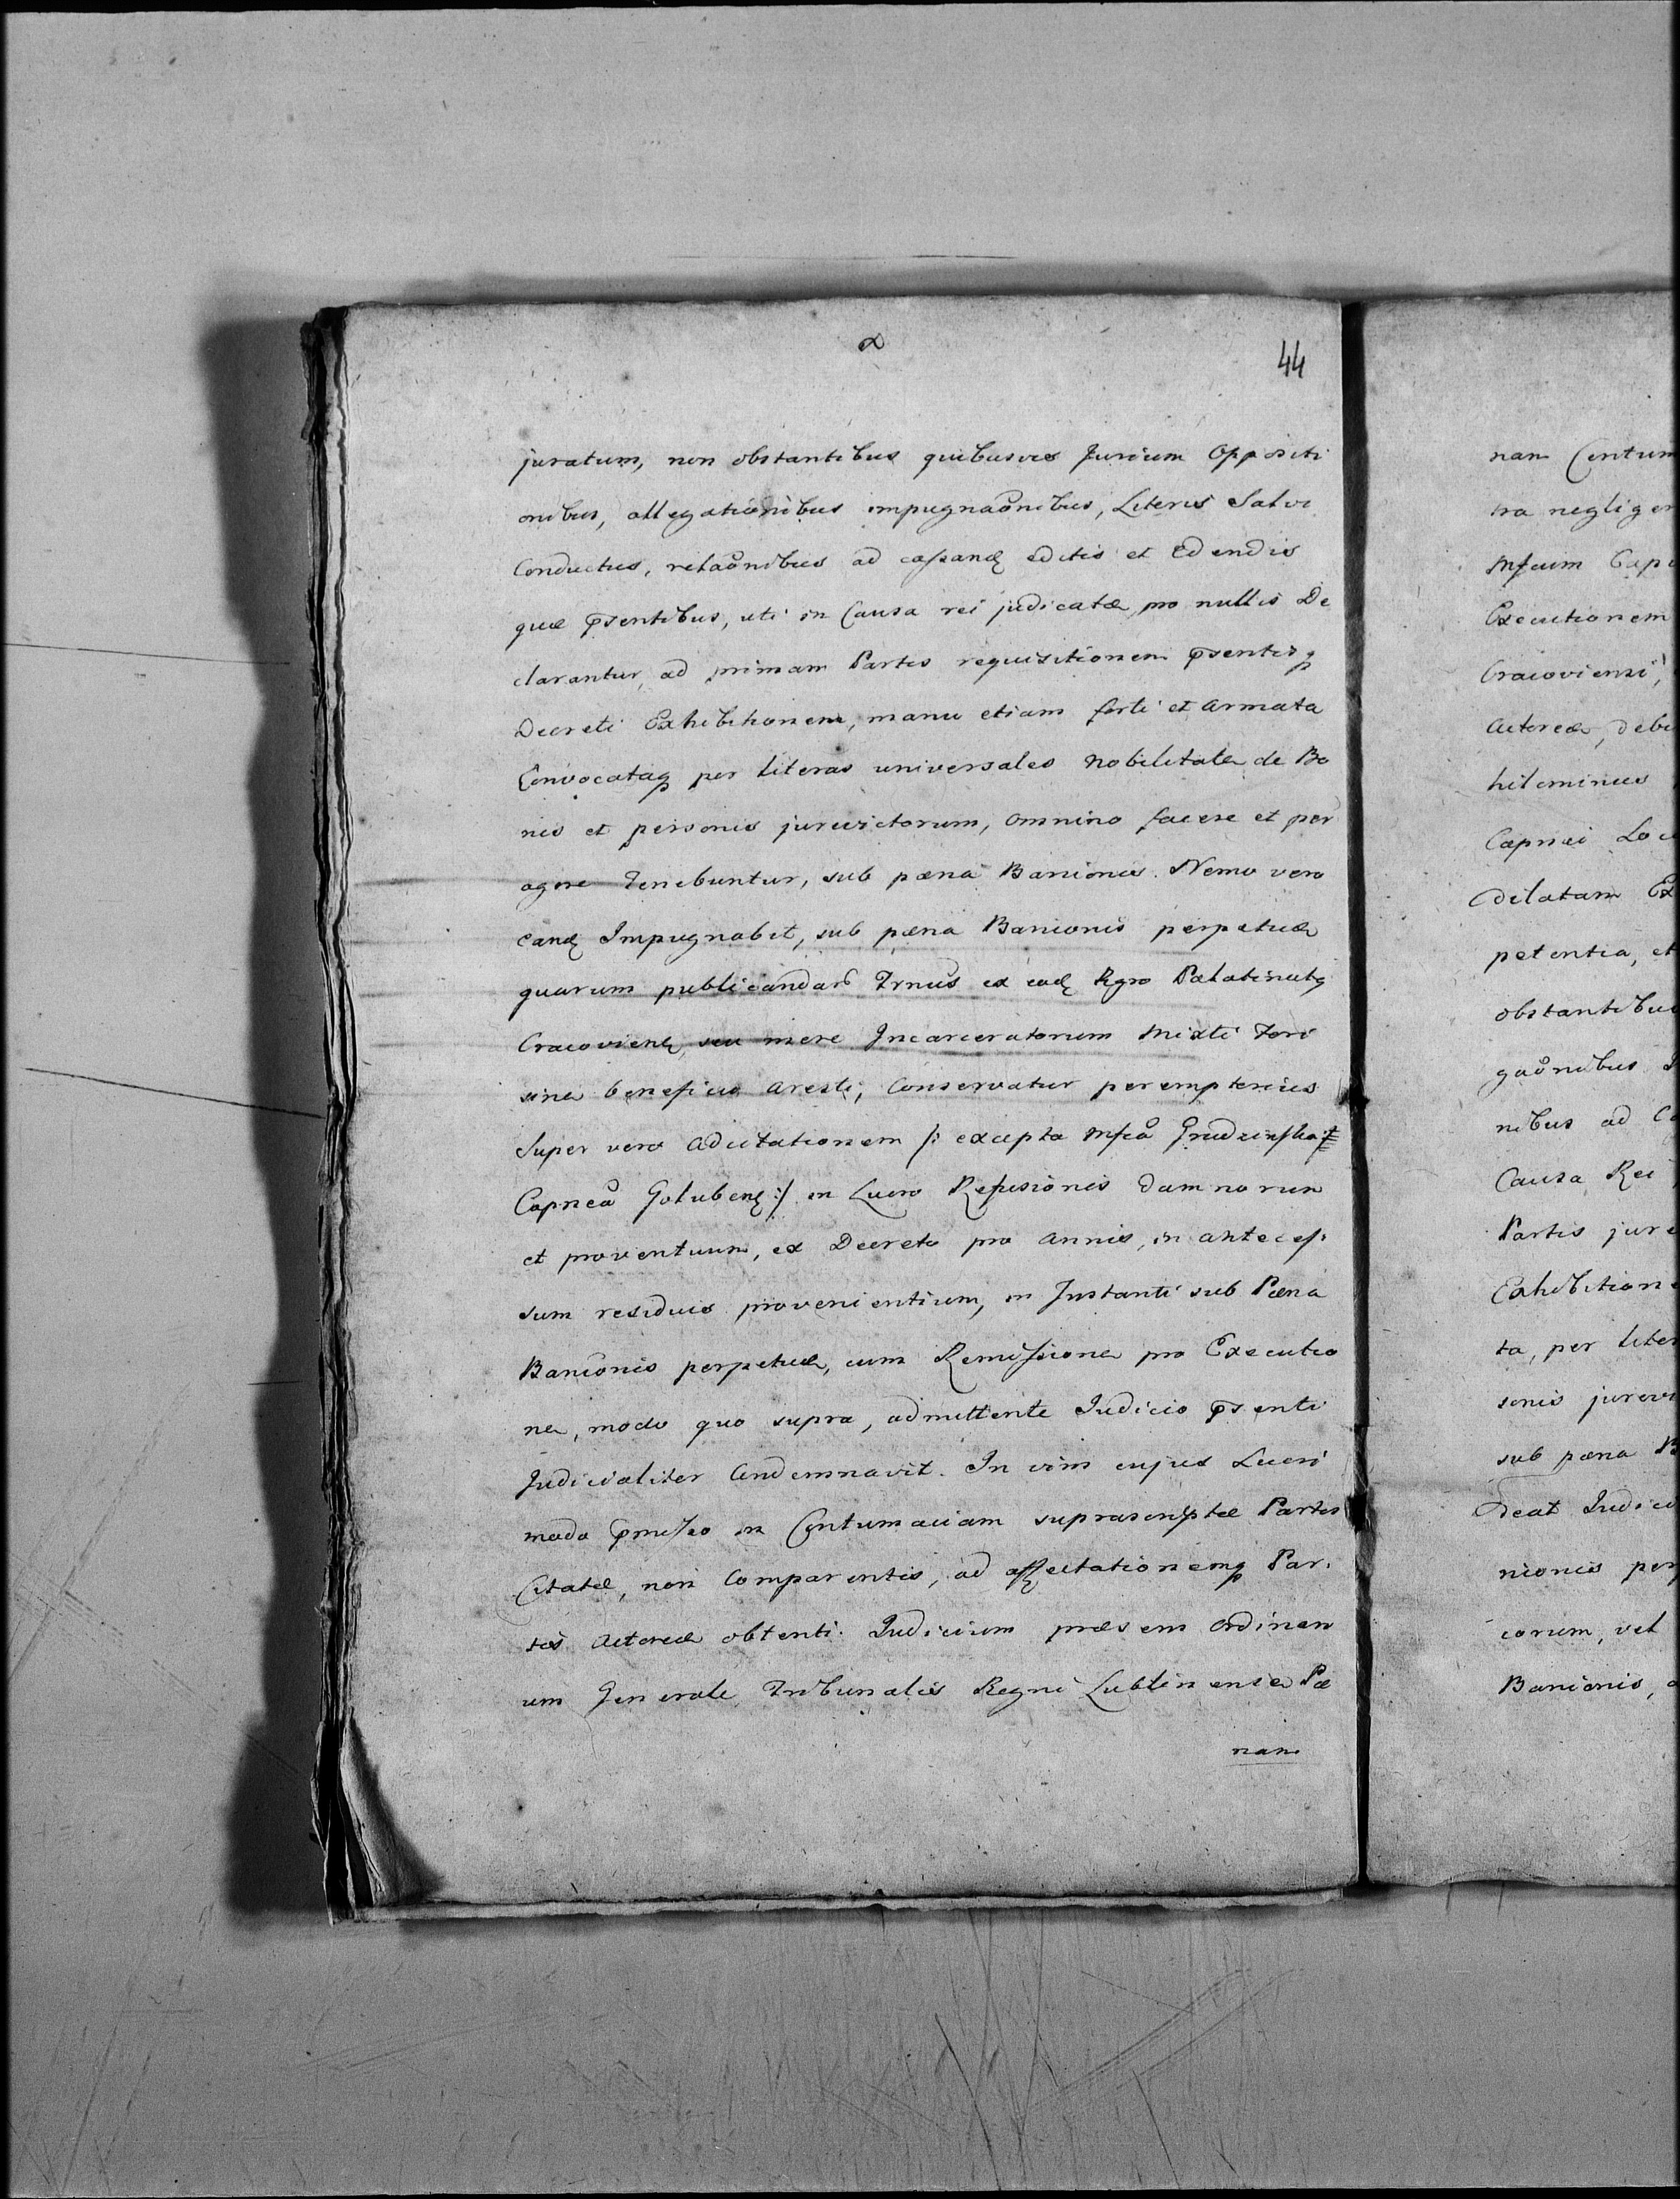 44
juratum, non obstantibus quibusvis Jurium Oppositi
onibus, allegationibus impugnaõnibus, Literis Salvi
Conductus, relaõnibus ad cassand editis et Edendis
quæ pšentibus, uti in Causa rei judicatæ, pro nullis De
clarantur, ad primam Partis requisitionem pšentisq
Decreti Exhibitionem, manu etiam forti et armata
Convocataq per literas universales Nobilitate de Bo
nis et personis jurevictorum, omnino facere et per
agere tenebuntur, sub pæna Banionis. Nemo vero
eand Impugnabit, sub pæna Banionis perpetuæ
quarum publicandar Trnus ex ead Regro Palatinatq
Cracovien, seu mere Incarceratorum Mixti Fori
sine beneficio aresti, Conservatur peremptorius
Super vero adcitationem /: excepta Mfca Grudzinska
Capnea Golubens :/ in Lucro Refusionis damnorum
et proventuum, ex Decreto pro annis, in anteces=
sum residuis provenientium, in Instanti sub Pæna
Banionis perpetuæ, cum Remissione pro Executio
ne, modo quo supra, admittente Judicio pšenti
Judicialiter Condemnavit. In vim cujus Lucri
modo pmisso in Contumaciam suprascriptæ Partis
Citatæ, non Comparentis, ad affectationemq Par=
tis Actoreæ obtenti. Judicium præsens Ordinari
um Generale Tribunalis Regni Lublinense Pæ
nam
nam Contum
tra neglige
Mfcum Cap
Executionem
Cracoviensi,
Actoreæ, deb
hilominus
Capnei Loc
dilatam Ex
petentia, et
obstantibus
gaõnibus
nibus ad Ca
Causa Rei
Partis jure
Exhibitione
ta, per liter
sonis jurevi
sub pæna B
deat Judici
nionis per
corum, vel
Banionis, a